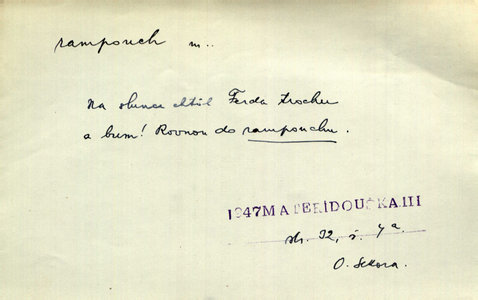 rampouch m..
Na slunce chtěl Ferda trochu
a bum! Rovnou do rampouchu.
1947 MATEŘÍDOUŠKA III
str. 32, s. 4a.
O. Sekora.